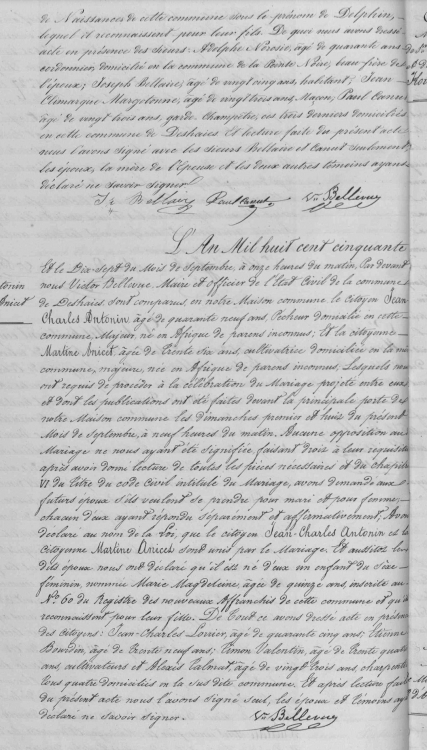 de Naissances de cette commune sous le prénom de Delphin,
lequel il reconnaissent pour leur fils. De quoi nous avons dressé
acte en présence des sieurs Adolphe Nérosie, âgé de quarante ans
cordonnier, domicilié en la commune de la Pointe Noire, beau-frère de
l'époux; Joseph Bellaire, âgé de vingt cinq ans, habitant; Jean
Climaque Margotonne, âgé de vingt trois ans, Maçon; Paul Canut
âgé de vingt trois ans, garde Champêtre, ces trois derniers domiciliés
en cette commune de Deshaies Et lecture faite du présent acte
nous l'avons signé avec les sieurs Bellaire et Canut seulement
les époux, la mère de l'épouse et les deux autres témoins ayant
déclaré ne savoir signer.
Jh Bellaire Paul Canut Vr Bellevue
L'An Mil huit cent cinquante
Et le Dix-sept du Mois de Septembre, à onze heures du matin, Par devant
nous Victor Bellevue Maire et officier de l'Etat Civil de la commune
de Deshaies Sont comparus, en notre Maison commune le citoyen Jean
Charles Antonin, âgé de quarante neuf ans, Pêcheur domicilié en cette
commune, Majeur, né en Afrique de parens inconnus; Et la citoyenne
Martine Anicet, âgée de trente six ans, cultivatrice domiciliée en la mê
commune, majeure, née en Afrique de parens inconnus. Lesquels nous
ont requis de procéder à la célébration du Mariage projeté entre eux
et dont les publications ont été faites devant la principale porte de
notre Maison commune les dimanches premier et huit du présent
Mois de Septembre, à neuf heures du matin. Aucune opposition au
Mariage ne nous ayant été signifiée, faisant droit à leur requisition
après avoir donné lecture de toutes les pièces nécessaires et du chapitre
VI du titre du code Civil intitulé du Mariage, avons demandé aux
futurs époux s'ils veulent se prendre pour mari et pour femme,
chacun d'eux ayant répondu séparément et affirmativement, Avons
déclaré au nom de la Loi, que le citoyen Jean-Charles Antonin et la
Citoyenne Martine Anicet sont unis par le Mariage. Et aussitôt les
dits époux nous ont déclaré qu'il est né d'eux un enfant du Sexe
féminin, nommée Marie Magdeleine, âgée de quinze ans, inscrite au
No. 60 du Registre des nouveaux Affranchis de cette commune et qu'ils
reconnaissent pour leur fille. De tout ce avons dressé acte en présence
des citoyens: Jean-Charles Lovier, âgé de quarante cinq ans; Etienne
Bourdin, âgé de trente neuf ans; Timon Valentin, âgé de trente quatre
ans, cultivateurs et Alexis Palmat, âgé de vingt trois ans, charpentier
tous quatre domiciliés en la sus dite commune. Et après lecture faite
du présent acte nous l'avons signé seul, les époux et témoins ay
déclaré ne savoir signer. Vr Bellevue
tonin
Anicet